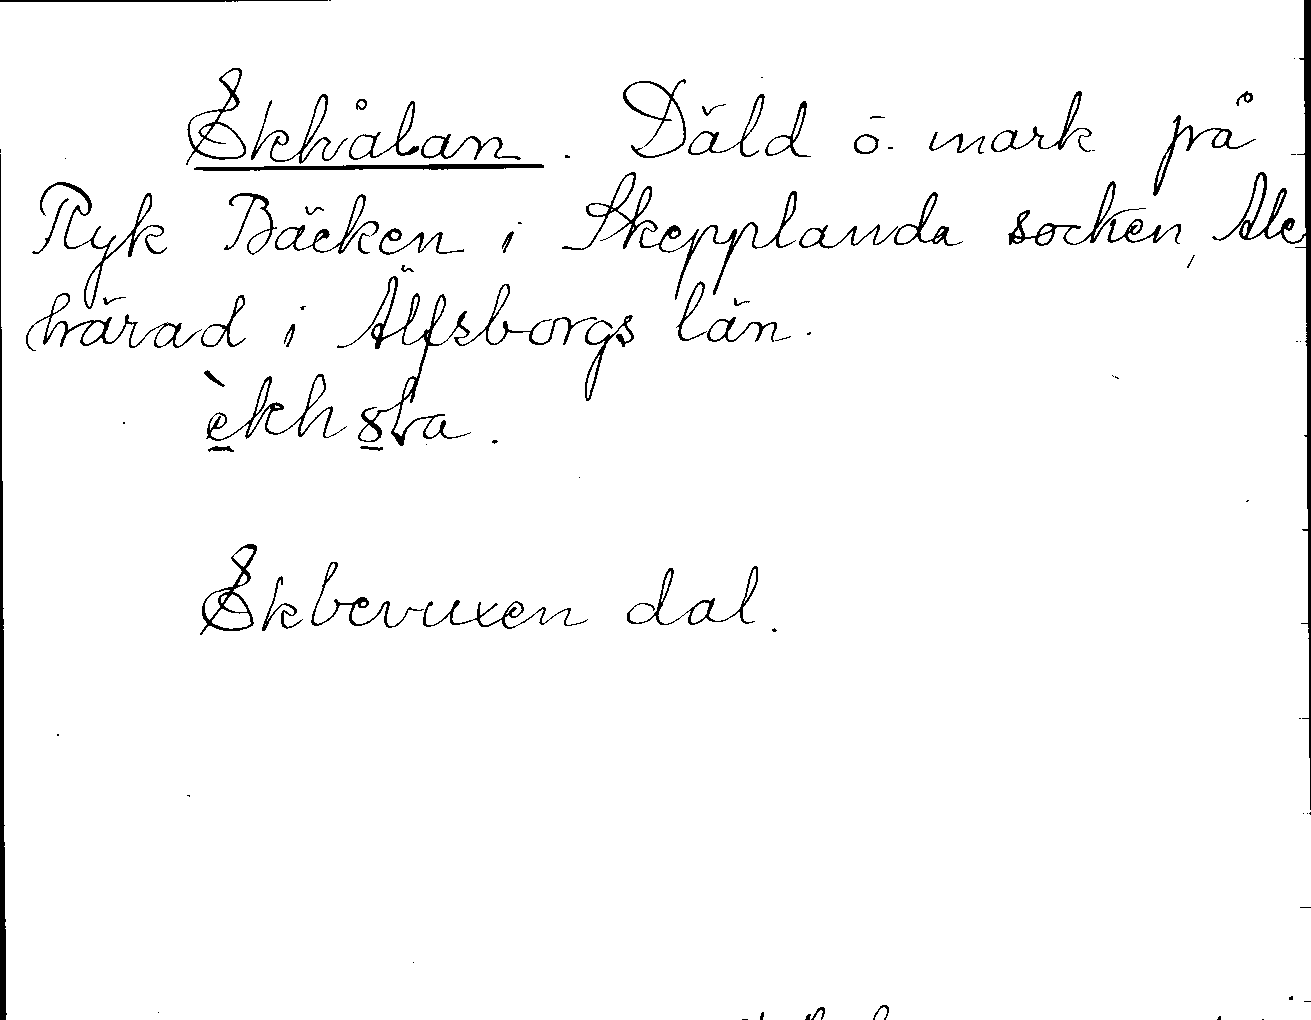 Ekhålan. Däld ö. mark på
Ryk Bäcken i Skepplanda socken, Ale
härad i Älfsborgs län.
Ekbevuxen dal.